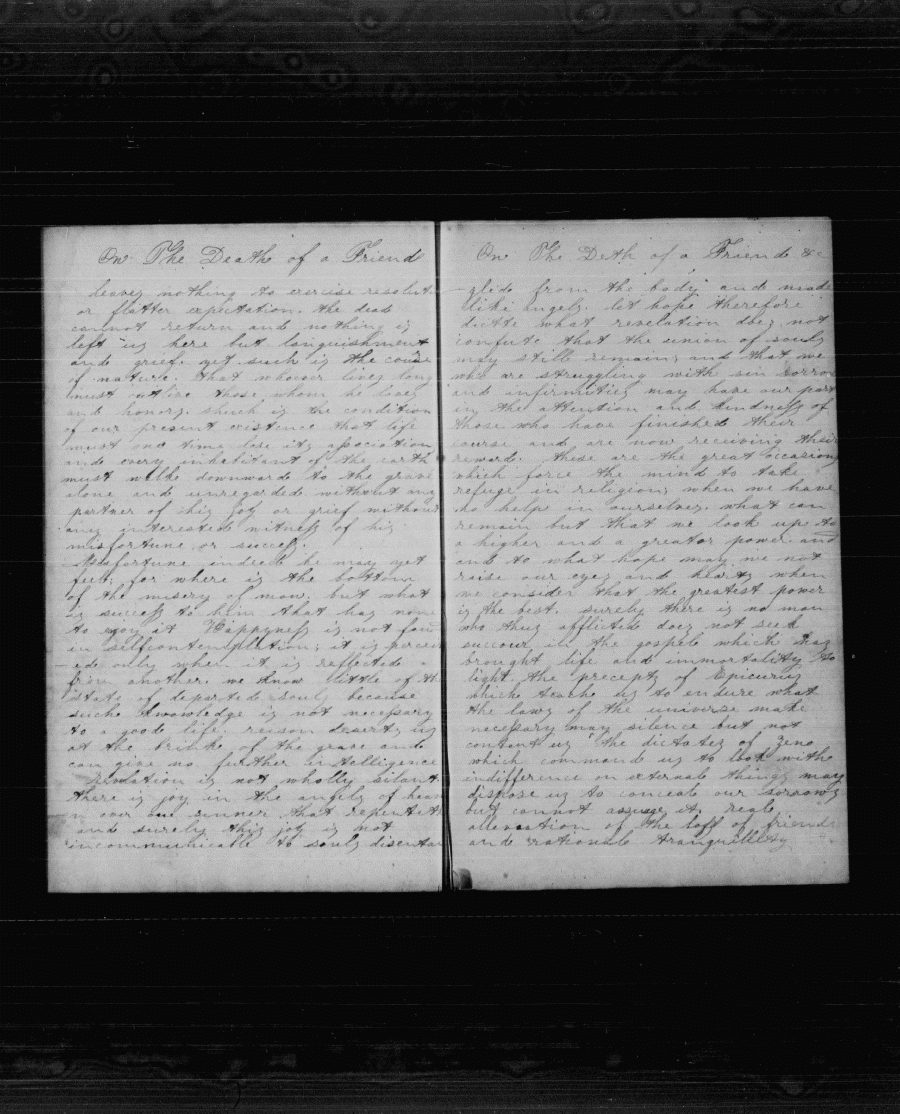 On The Death of a Friend
leavez nothing to exercise resolut
or flatter expectation. the dead
cannot return and nothing iz
left us here but languishment
and grief. yet such iz the course
of nature. that whoever livez long
must outlive those whom he lovez
and honorz. shuch iz the condition
of our present existence that life
must one time lose itz association
and every inhabitant of the earth
must walke downward to the grave
alone and unregarded without any
partner of hiz joy or grief without
any interested witness of hiz
misfortune or success.
Misfortune indeed he may yet
feel; for where iz the bottom
of the misery of man. but what
iz success to him that haz none
to enjoy it Happyness iz not foun
in selfcontemplation; it iz perceiv
ed only when it iz reflected
from another. we know little of the
state of departed soulz because
such knowledge iz not necessary
to a good life. reason desertz uz
at the brinke of the grave and
can give no further intelligence
revelation iz not wholly silant.
there iz joy in the angelz of heav
n over one sinner that repenteth
and surely thiz joy iz not
incommunicable to soulz disentan
On The Deth of a Friend &c
gled from the body and made
like angelz. let hope therefore
dictte what revelation doez not
confute that the union of soulz
may still remain; and that we
who are struggling with sin sorrow
and infirmitiez may have our part
in the attention and kindness of
those who have finished their
course and are now receiving their
reward. these are the great occasionz
which force the mind to take
refuge in religion; when we have
no help in ourselvez. what can
remain but that we look up to
a higher and a greator power. and
and to what hope may we not
raise our eyez and heartz when
we consider that the greatest power
iz the best. surely there iz no man
who thuz afflicted doez not seek
succour in the gospele which haz
brought life and immortality to
light. the preceptz of Epicuriuz
which teache uz to endure what
the lawz of the universe make
necessary may silence but not
content uz the dictatez of Zeno
which commande uz to look withe
indifference on externale thingz may
dispose uz to conceale our sorrowz
but cannot assuage it. reale
alleveation of the loss of friendz
and rationale tranquillity